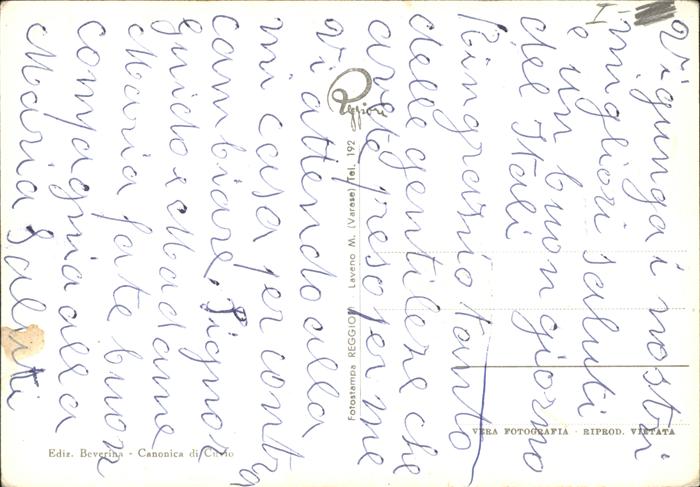 Vi giunga i nostri
migliori saluti
e un buon giorno
del Itali
Ringrazio tanto
delle gentilere che
avete preso per me
vi attendo alla
mi casa per contra
cambiare, Signor
guido e Madame
Maria fate buon
compagnia alla
Maria Saluti
I
Reggiori
Fotostampa REGGIORI - Laveno M. (Varese) Tel. 192
VERA FOTOGRAFIA - RIPROD. VIETATA
Ediz. Beverina - Canonica di Cuvio